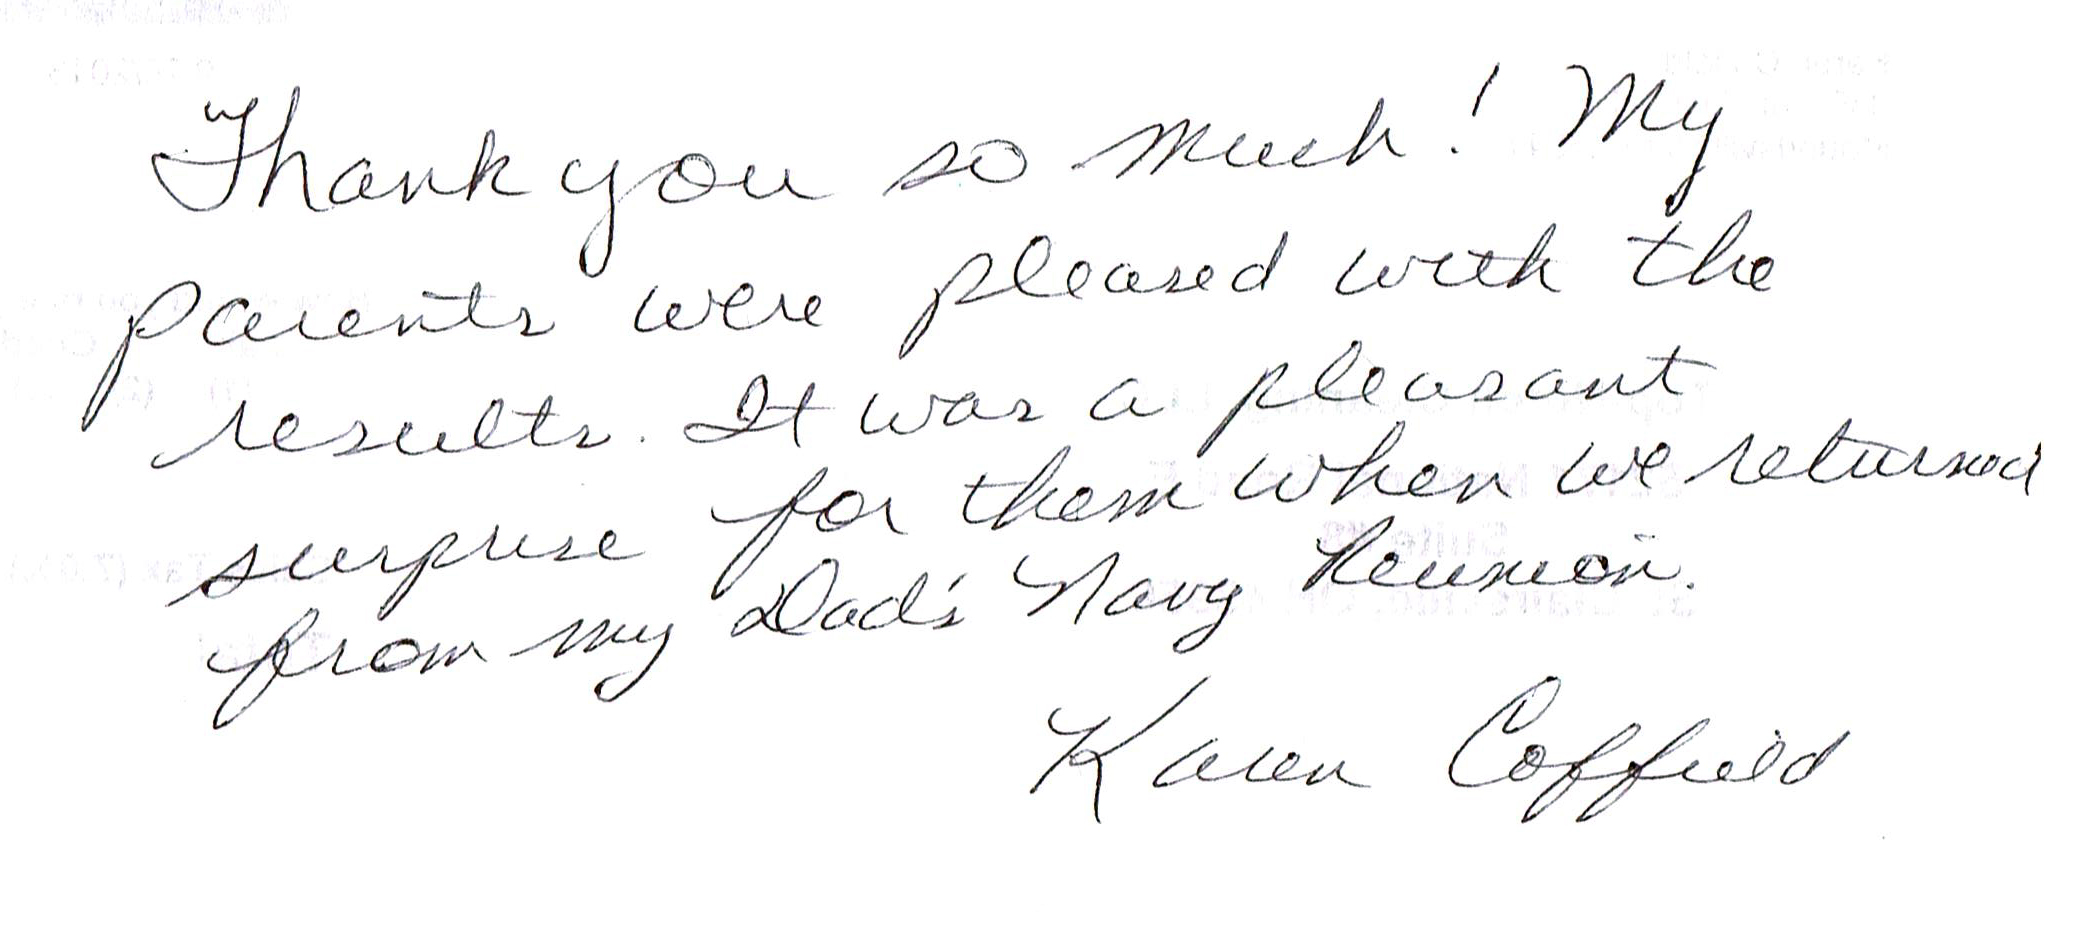 Thank you so much! My
parents were pleased with the
results. It was a pleasant
surprise for them when we returned
from my Dad's Navy Reunion.
Karen Coffield